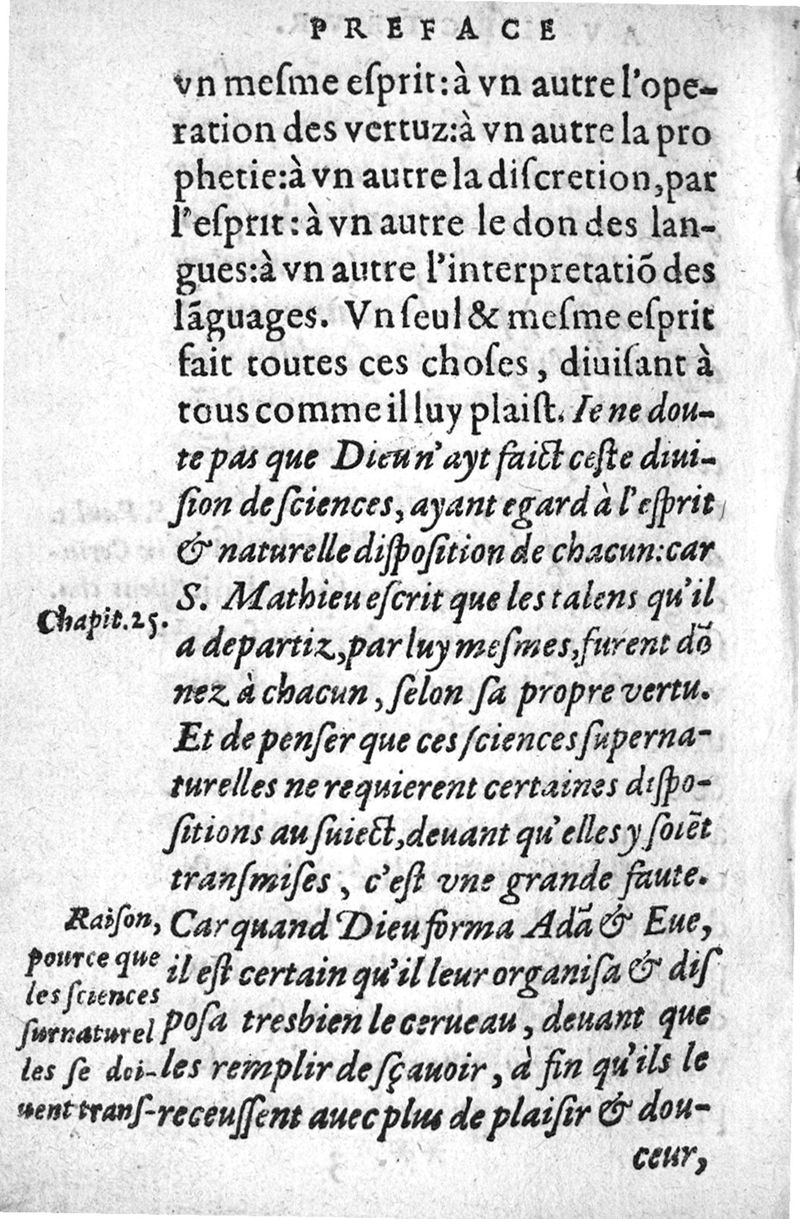 PREFACE
vn meſme eſprit:à vn autre l'ope-
ration des vertuz:à vn autre la pro
phetie:à vn autre la diſcretion,par
l'eſprit:à vn autre le don des lan-
gues:à vn autre l'interpretatiõ des
lãguages. Vn ſeul & meſme eſprit
fait toutes ces choſes, diuiſant à
tous comme il luy plaiſt. Ie ne dou-
te pas que Dieu n'ayt faict ceſte diui-
ſion de ſciences, ayant egard à l'eſprit
& naturelle diſpoſition de chacun:car
S. Mathieu eſcrit que les talens qu'il
a departiz,par luy meſmes,furent dõ
nez à chacun, ſelon ſa propre vertu.
Et de penſer que ces ſciences ſuperna-
turelles ne requierent certaines diſpo-
ſitions au ſuiect,deuant qu'elles y ſoiẽt
transmiſes, c'eſt vne grande faute.
Car quand Dieu forma Adã & Eue,
il eſt certain qu'il leur organiſa & diſ
poſa tresbien le cerueau, deuant que
les remplir de ſçauoir, à fin qu'ils le
receuſſent auec plus de plaiſir & dou-
ceur,
Chapit.25.
Raiſon,
pource que
les ſciences
ſurnaturel
les ſe doi-
uent tranſ-